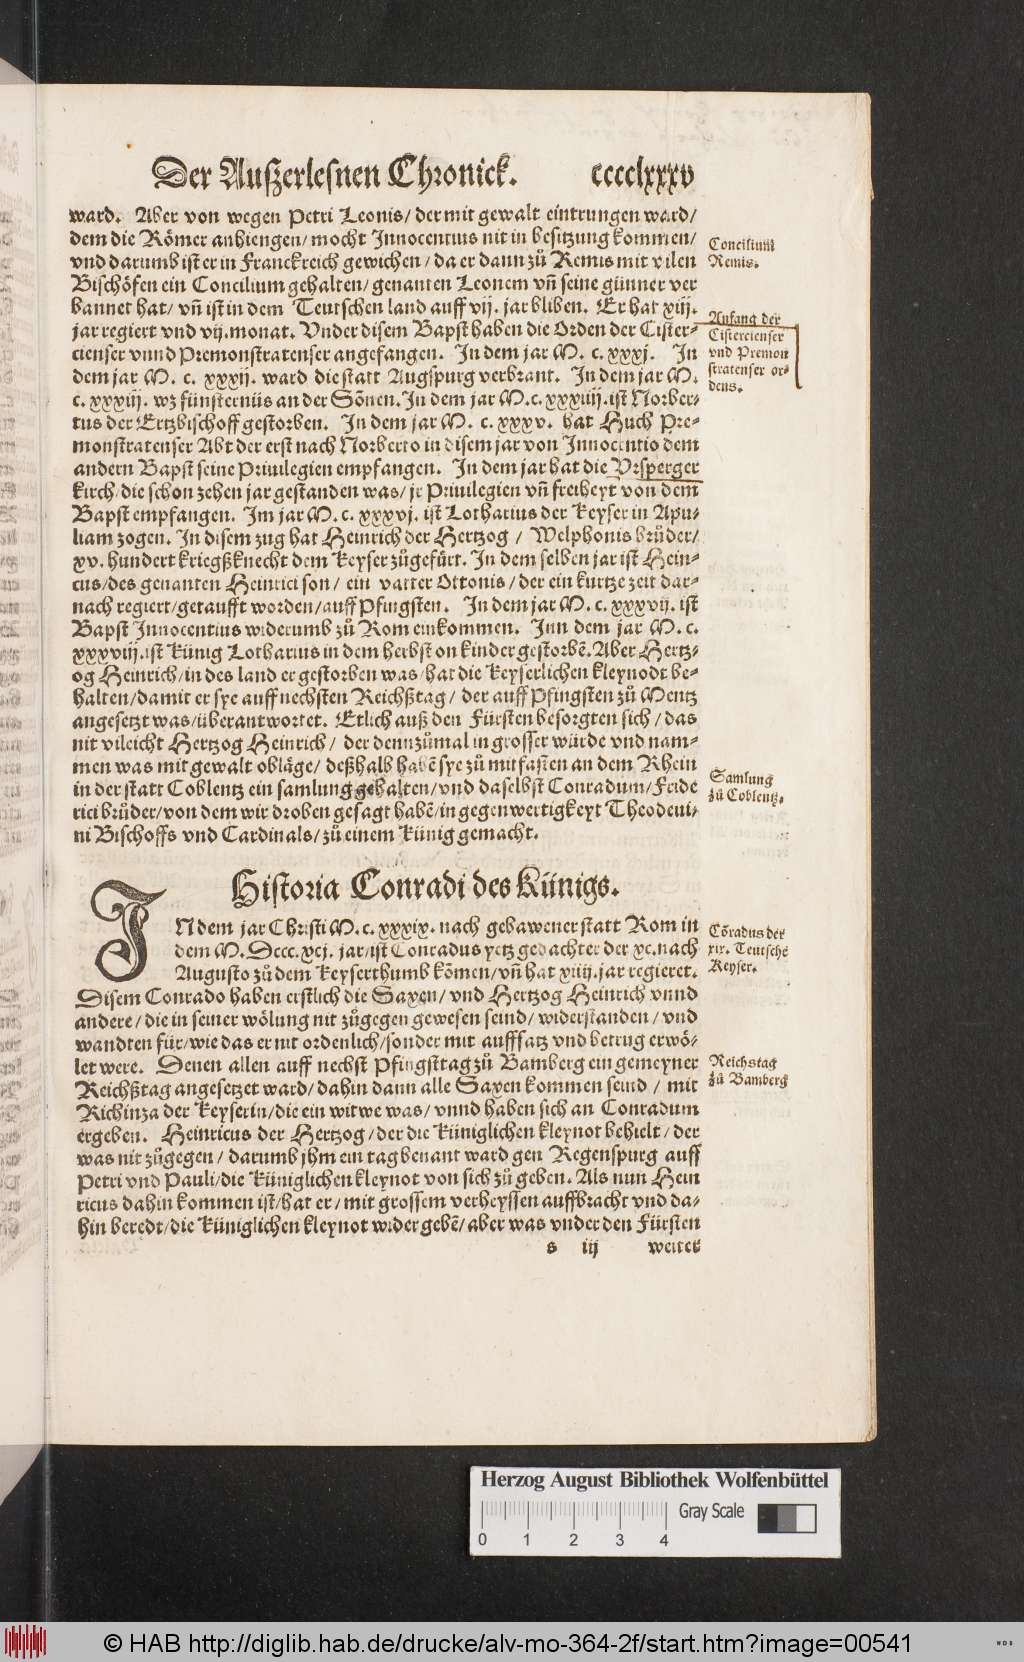 Der Außerlesnen Chronick. cccclxxxv
ward. Aber von wegen Petri Leonis/ der mit gewalt eintrungen ward/
dem die Römer anhiengen/ mocht Innocentius nit in besitzung kommen/
vnd darumb ist er in Franckreich gewichen/ da er dann zů Remis mit vilen
Bischöfen ein Concilium gehalten/ genanten Leonem vñ seine günner ver
bannet hat/ vñ ist in dem Teutschen land auff vij. jar bliben. Er hat xiij.
jar regiert vnd vij. monat. Vnder disem Bapst haben die Orden der Cister-
cienser vnnd Premonstratenser angefangen. In dem jar M. c. xxxj. In
dem jar M. c. xxxij. ward die statt Augspurg verbrant. In dem jar M.
c. xxxiij. wz finsternüs an der Sõnen. In dem jar M. c. xxxiiij. ist Norber-
tus der Ertzbischoff gestorben. In dem jar M. c. xxxv. hat Huch Pre-
monstratenser Abt der erst nach Norberto in disem jar von Innocentio dem
andern Bapst seine Priuilegien empfangen. In dem jar hat die Vrsperger
kirch/ die schon zehen jar gestanden was/ jr Priuilegien vñ freiheyt von dem
Bapst empfangen. Im jar M. c. xxxvj. ist Lotharius der Keyser in Apu-
liam zogen. In disem zug hat Heinrich der Hertzog/ Welphonis brůder/
xv. hundert kriegßknecht dem Keyser zůgefürt. In dem selben jar ist Hein-
cus/ des genanten Heinrici son/ ein vatter Ottonis/ der ein kurtze zeit dar-
nach regiert/ getaufft worden/ auff Pfingsten. In dem jar M. c. xxxvij. ist
Bapst Innocentius widerumb zů Rom einkommen. Inn dem jar M. c.
xxxviij. ist Künig Lotharius in dem herbst on kinder gestorbẽ. Aber Hertz-
og Heinrich/ in des land er gestorben was/ hat die Keyserlichen kleynodt be-
halten/ damit er sye auff nechsten Reichßtag/ der auff Pfingsten zů Mentz
angesetzt was/ überantwortet. Etlich auß den Fürsten besorgten sich/ das
nit vileicht Hertzog Heinrich/ der dennzůmal in grosser würde vnd nam-
men was mit gewalt obläge/ deßhalb habẽ sye zů mitfasten an dem Rhein
in der statt Coblentz ein samlung gehalten/ vnd daselbst Conradum/ Fride
rici brůder/ von dem wir droben gesagt habẽ/ in gegenwertigkeyt Theodeui-
ni Bischoffs vnd Cardinals/ zů einem Künig gemacht.
Concilium
Remis.
Anfang der
Cistercienser
vnd Premon
stratenser or-
dens.
Samlung
zů Coblentz.
Historia Conradi des Künigs.
IN dem jar Christi M. c. xxxix. nach gebawener statt Rom in
dem M. Dccc. xcj. jar/ ist Conradus yetz gedachter der xc. nach
Augusto zů dem Keyserthumb kõmen/ vñ hat xiiij. jar regieret.
Disem Conrado haben erstlich die Saxen/ vnd Hertzog Heinrich vnnd
andere/ die in seiner wölung nit zůgegen gewesen seind/ widerstanden/ vnd
wandten für/ wie das er nit ordenlich/ sonder mit auffsatz vnd betrug erwö-
let were. Denen allen auff nechst Pfingsttag zů Bamberg ein gemeyner
Reichßtag angesetzet ward/ dahin dann alle Saxen kommen seind/ mit
Richinza der Keyserin/ die ein witwe was/ vnnd haben sich an Conradum
ergeben. Heinricus der Hertzog/ der die Küniglichen kleynot behielt/ der
was nit zůgegen/ darumb jhm ein tag benant ward gen Regenspurg auff
Petri vnd Pauli/ die Küniglichen kleynot von sich zů geben. Als nun Hein
ricus dahin kommen ist/ hat er/ mit grossem verheyssen auffbracht vnd da-
hin beredt/ die Küniglichen kleynot wider gebẽ/ aber was vnder den Fürsten
s iij weiter
Cõradus der
xix. Teutschẽ
Keyser.
Reichstag
zů Bamberg
Herzog August Bibliothek Wolfenbüttel
Gray Scale
0 1 2 3 4
© HAB http://diglib.hab.de/drucke/alv-mo-364-2f/start.htm?image=00541